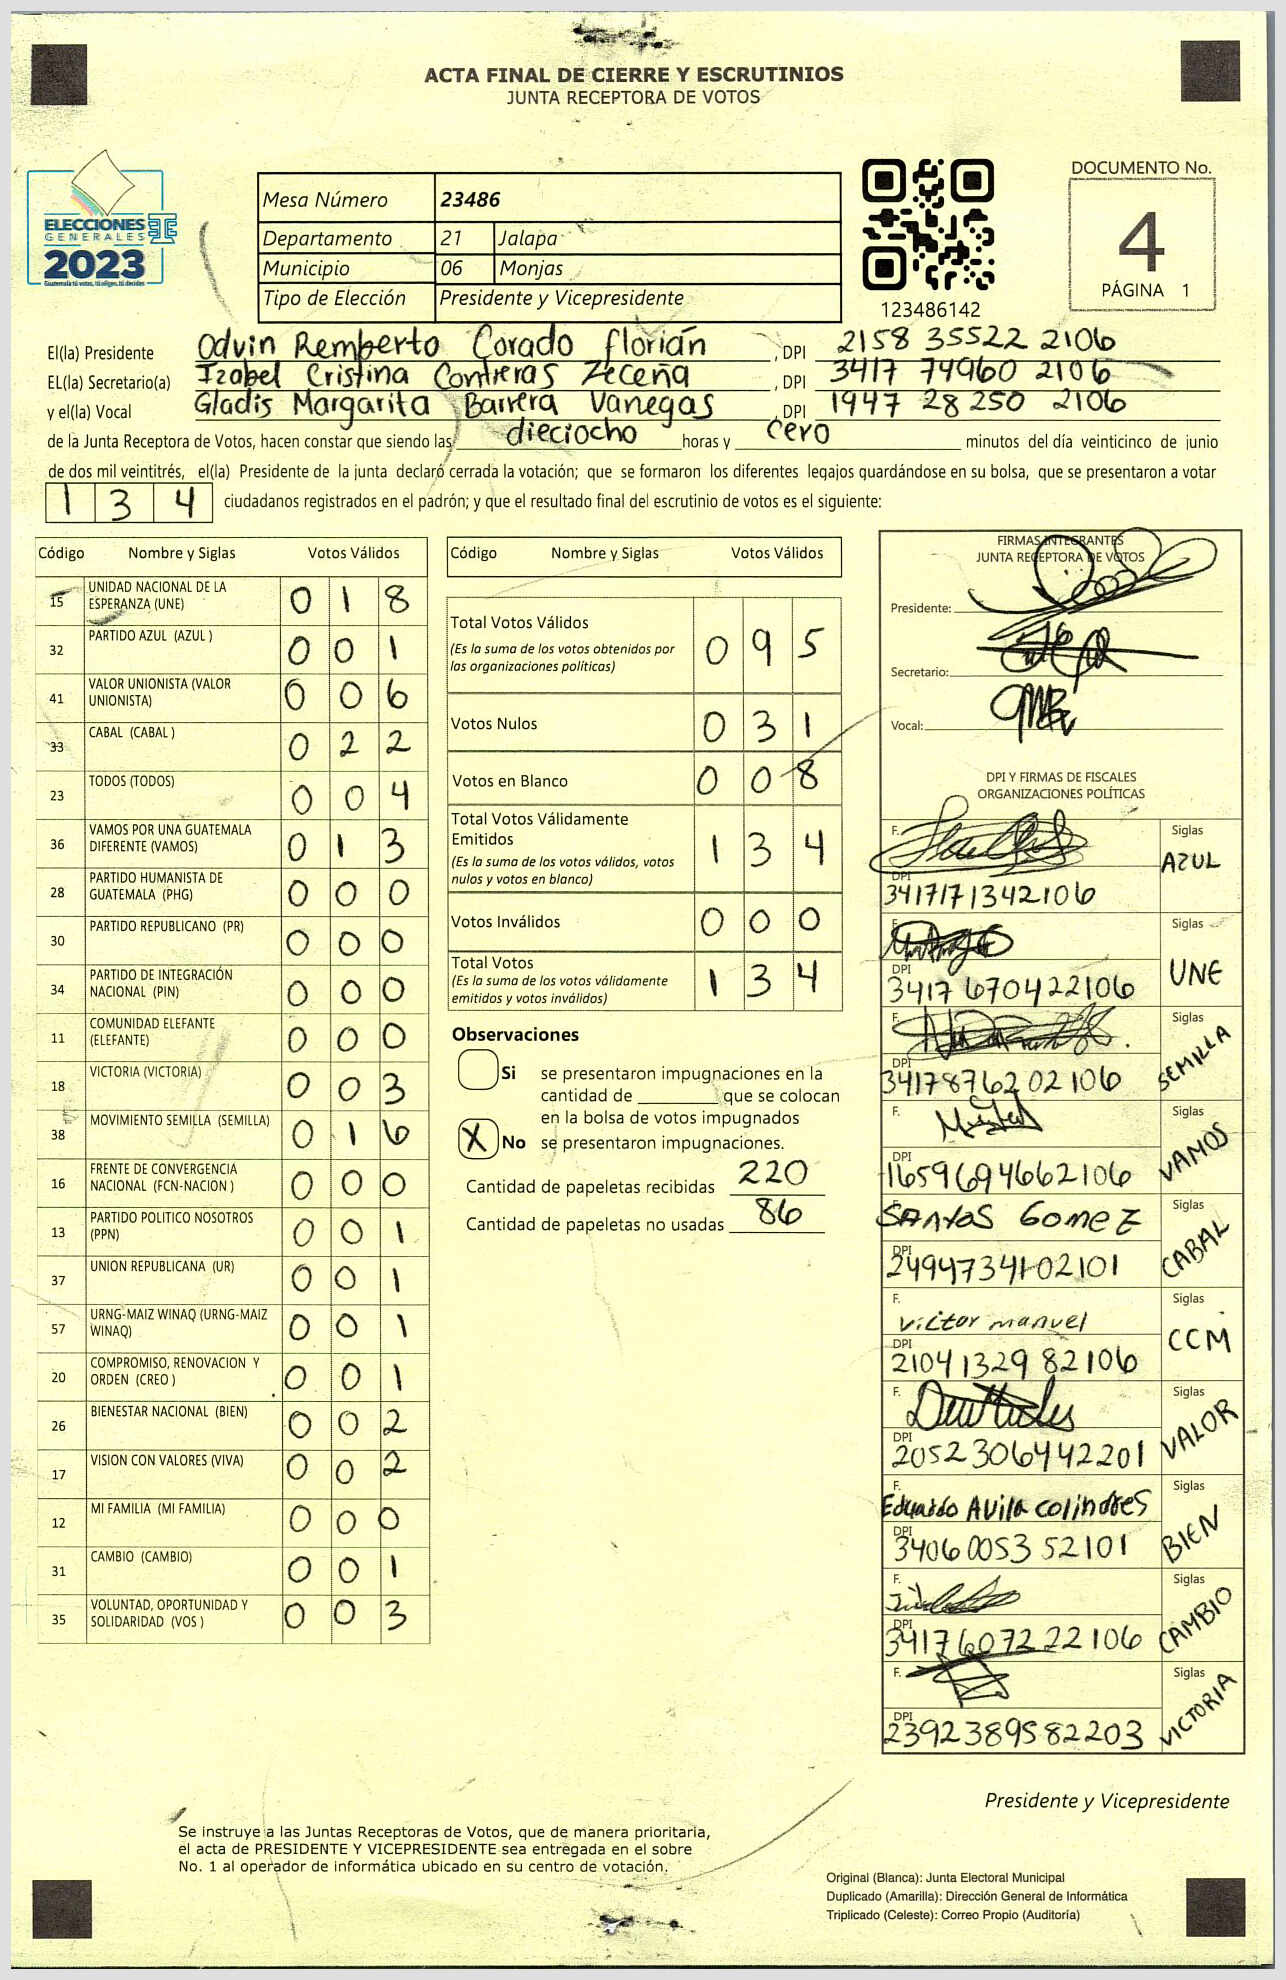 ACTA FINAL DE CIERRE Y ESCRUTINIOS
JUNTA RECEPTORA DE VOTOS
ELECCIONES
GENERALES
2023
Guatemala tú votas, tú eliges, tú decides
Mesa Número 23486
Departamento 21 Jalapa
Municipio 06 Monjas
Tipo de Elección Presidente y Vicepresidente
123486142
DOCUMENTO No.
4
PÁGINA 1
El(la) Presidente Odvin Remberto Corado florián , DPI 2158 35522 2106
EL(la) Secretario(a) Izabel Cristina Contreras Zeceña , DPI 3417 74960 2106
y el(la) Vocal Gladis Margarita Barrera Vanegas , DPI 1947 28250 2106
de la Junta Receptora de Votos, hacen constar que siendo las dieciocho horas y cero minutos del día veinticinco de junio
de dos mil veintitrés, el(la) Presidente de la junta declaró cerrada la votación; que se formaron los diferentes legajos guardándose en su bolsa, que se presentaron a votar
134 ciudadanos registrados en el padrón; y que el resultado final del escrutinio de votos es el siguiente:
Código Nombre y Siglas Votos Válidos
15 UNIDAD NACIONAL DE LA ESPERANZA (UNE) 0 1 8
32 PARTIDO AZUL (AZUL ) 0 0 1
41 VALOR UNIONISTA (VALOR UNIONISTA) 0 0 6
33 CABAL (CABAL ) 0 2 2
23 TODOS (TODOS) 0 0 4
36 VAMOS POR UNA GUATEMALA DIFERENTE (VAMOS) 0 1 3
28 PARTIDO HUMANISTA DE GUATEMALA (PHG) 0 0 0
30 PARTIDO REPUBLICANO (PR) 0 0 0
34 PARTIDO DE INTEGRACIÓN NACIONAL (PIN) 0 0 0
11 COMUNIDAD ELEFANTE (ELEFANTE) 0 0 0
18 VICTORIA (VICTORIA) 0 0 3
38 MOVIMIENTO SEMILLA (SEMILLA) 0 1 6
16 FRENTE DE CONVERGENCIA NACIONAL (FCN-NACION ) 0 0 0
13 PARTIDO POLITICO NOSOTROS (PPN) 0 0 1
37 UNION REPUBLICANA (UR) 0 0 1
57 URNG-MAIZ WINAQ (URNG-MAIZ WINAQ) 0 0 1
20 COMPROMISO, RENOVACION Y ORDEN (CREO ) 0 0 1
26 BIENESTAR NACIONAL (BIEN) 0 0 2
17 VISION CON VALORES (VIVA) 0 0 2
12 MI FAMILIA (MI FAMILIA) 0 0 0
31 CAMBIO (CAMBIO) 0 0 1
35 VOLUNTAD, OPORTUNIDAD Y SOLIDARIDAD (VOS ) 0 0 3
Código Nombre y Siglas Votos Válidos
Total Votos Válidos 0 9 5
(Es la suma de los votos obtenidos por
las organizaciones políticas)
Votos Nulos 0 3 1
Votos en Blanco 0 0 8
Total Votos Válidamente
Emitidos 1 3 4
(Es la suma de los votos válidos, votos
nulos y votos en blanco)
Votos Inválidos 0 0 0
Total Votos 1 3 4
(Es la suma de los votos válidamente
emitidos y votos inválidos)
Observaciones
Si se presentaron impugnaciones en la
cantidad de que se colocan
en la bolsa de votos impugnados
X No se presentaron impugnaciones.
Cantidad de papeletas recibidas 220
Cantidad de papeletas no usadas 86
FIRMAS INTEGRANTES
JUNTA RECEPTORA DE VOTOS
Presidente:
Secretario:
Vocal:
DPI Y FIRMAS DE FISCALES
ORGANIZACIONES POLÍTICAS
F. Siglas
AZUL
DPI
3417171342106
F. Siglas
UNE
DPI
3417 670422106
F. Siglas
SEMILLA
DPI
3417876202106
F. Siglas
VAMOS
DPI
1659694662106
F. Siglas
SANtos GomeZ CABAL
DPI
2494734102101
F. Siglas
Victor manuel CCM
DPI
2104132982106
F. Siglas
VALOR
DPI
2052306442201
F. Siglas
Eduardo Avila colindres BIEN
DPI
3406005352101
F. Siglas
CAMBIO
DPI
3417607222106
F. Siglas
VICTORIA
DPI
2392389582203
Presidente y Vicepresidente
Se instruye a las Juntas Receptoras de Votos, que de manera prioritaria,
el acta de PRESIDENTE Y VICEPRESIDENTE sea entregada en el sobre
No. 1 al operador de informática ubicado en su centro de votación.
Original (Blanca): Junta Electoral Municipal
Duplicado (Amarilla): Dirección General de Informática
Triplicado (Celeste): Correo Propio (Auditoría)